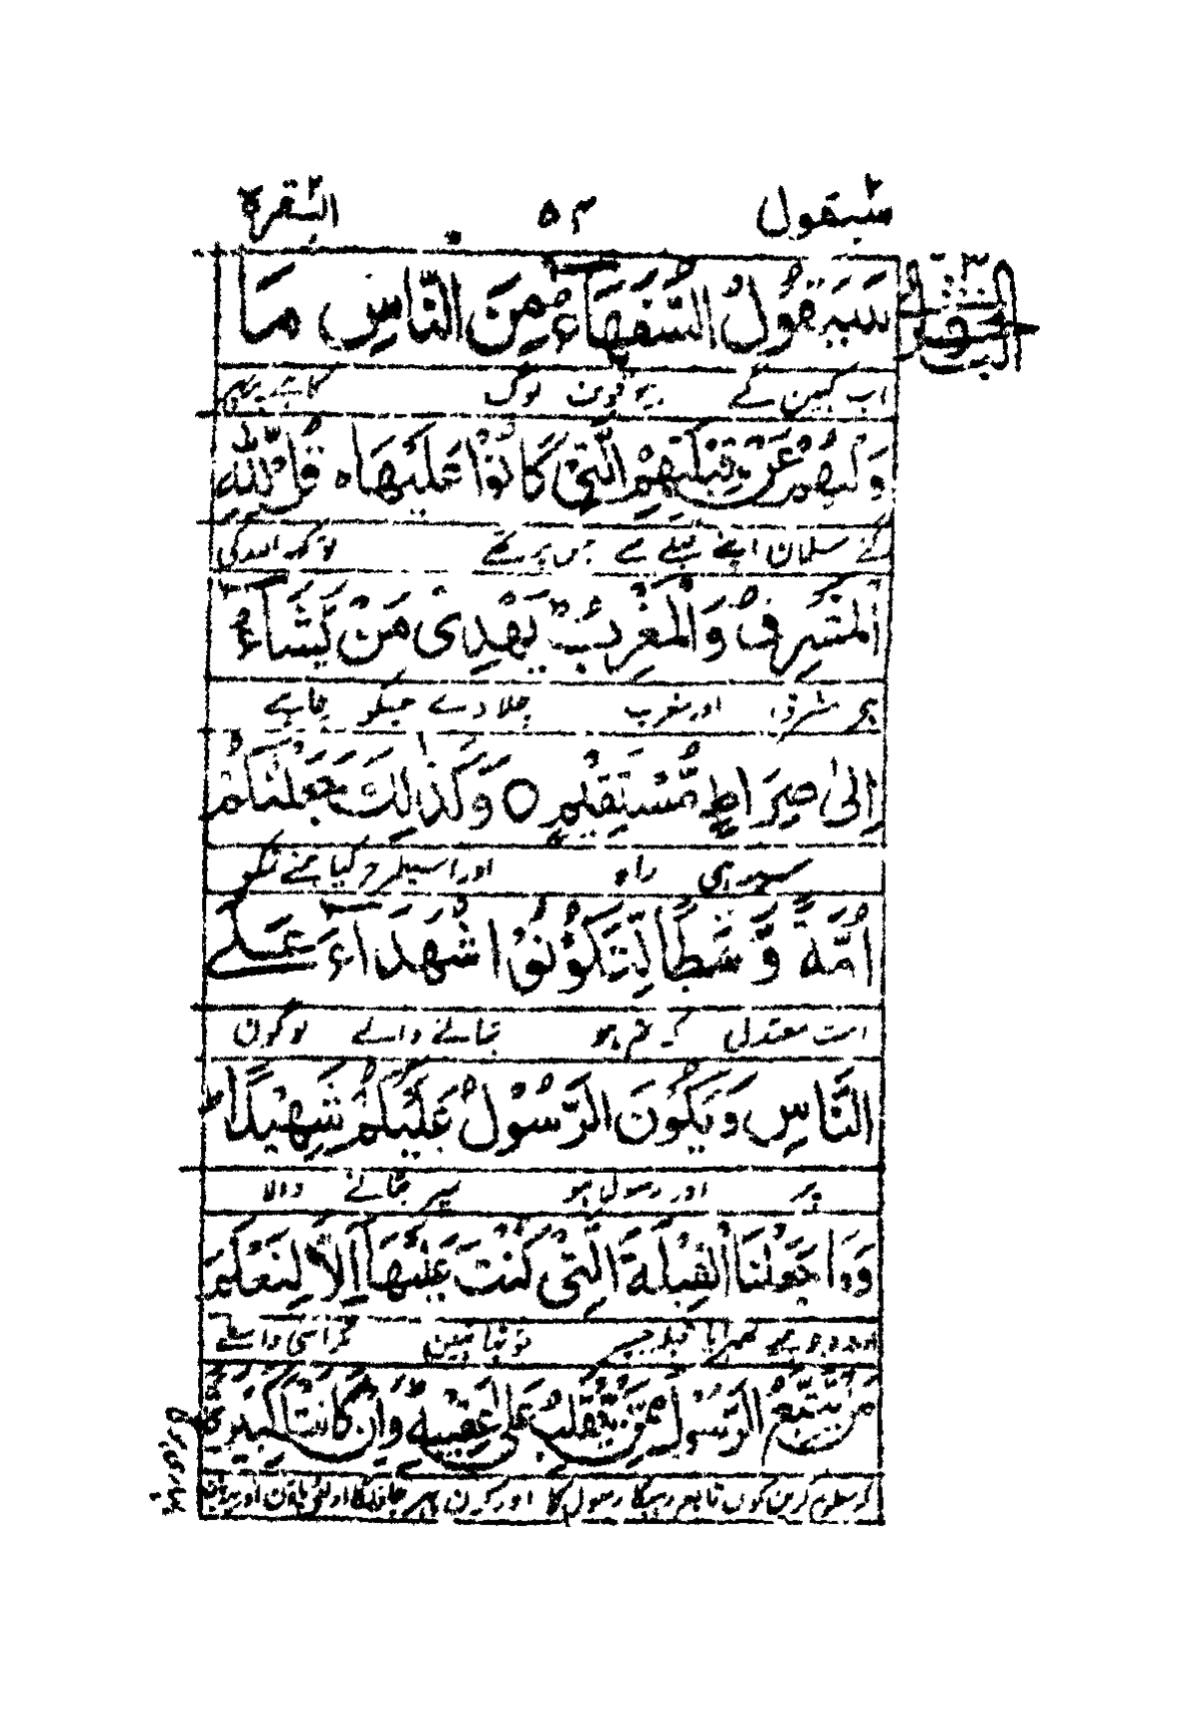 سيقول ۲ ۵۴ البقرة ۲
سَيَقُوْلُ السُّفَهَآءُ مِنَ النَّاسِ مَا
اب کہیں گے بیوقوف لوگ کاہے پر پھر
وَلّٰىهُمْ عَنْ قِبْلَتِهِمُ الَّتِيْ كَانُوْا عَلَيْهَا ؕ قُلْ لِّلّٰهِ
گئے مسلمان اپنے قبلے سے جس پر تھے تو کہہ اللہ کی
الْمَشْرِقُ وَالْمَغْرِبُ ؕ يَهْدِىْ مَنْ يَّشَآءُ
ہے مشرق اور مغرب چلا دے جسکو چاہے
اِلٰى صِرَاطٍ مُّسْتَقِيْمٍ ○ وَكَذٰلِكَ جَعَلْنٰكُمْ
سیدھی راہ اور اسیطرح کیا ہمنے تمکو
اُمَّةً وَّسَطًا لِّتَكُوْنُوْا شُهَدَآءَ عَلَى
امت معتدل کہ تم ہو بتانے والے لوگون
النَّاسِ وَيَكُوْنَ الرَّسُوْلُ عَلَيْكُمْ شَهِيْدًا ؕ
پر اور رسول ہو تمپر بتانے والا
وَمَا جَعَلْنَا الْقِبْلَةَ الَّتِيْ كُنْتَ عَلَيْهَآ اِلَّا لِنَعْلَمَ
اور وہ جو ہمنے ٹھہرایا قبلہ جسپر تو تھا نہین مگر اسی واسطے
مَنْ يَّتَّبِعُ الرَّسُوْلَ مِمَّنْ يَّنْقَلِبُ عَلٰى عَقِبَيْهِ ؕ وَاِنْ كَانَتْ لَكَبِيْرَةً
کہ معلوم کرین کون تابع رہیگا رسول کا اور کون پھر جاویگا اولٹے پاؤن اور یہ بات